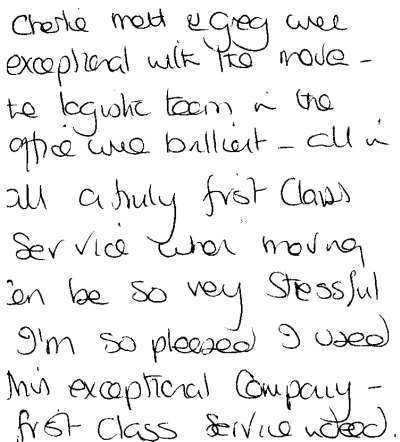 Charlie matt & Greg were
exceptional with the move -
the logistic team in the
office were brilliant - all in
all a truly first Class
Service when moving
can be so very stressful
I'm so pleased I used
this exceptional Company -
first Class Service indeed.